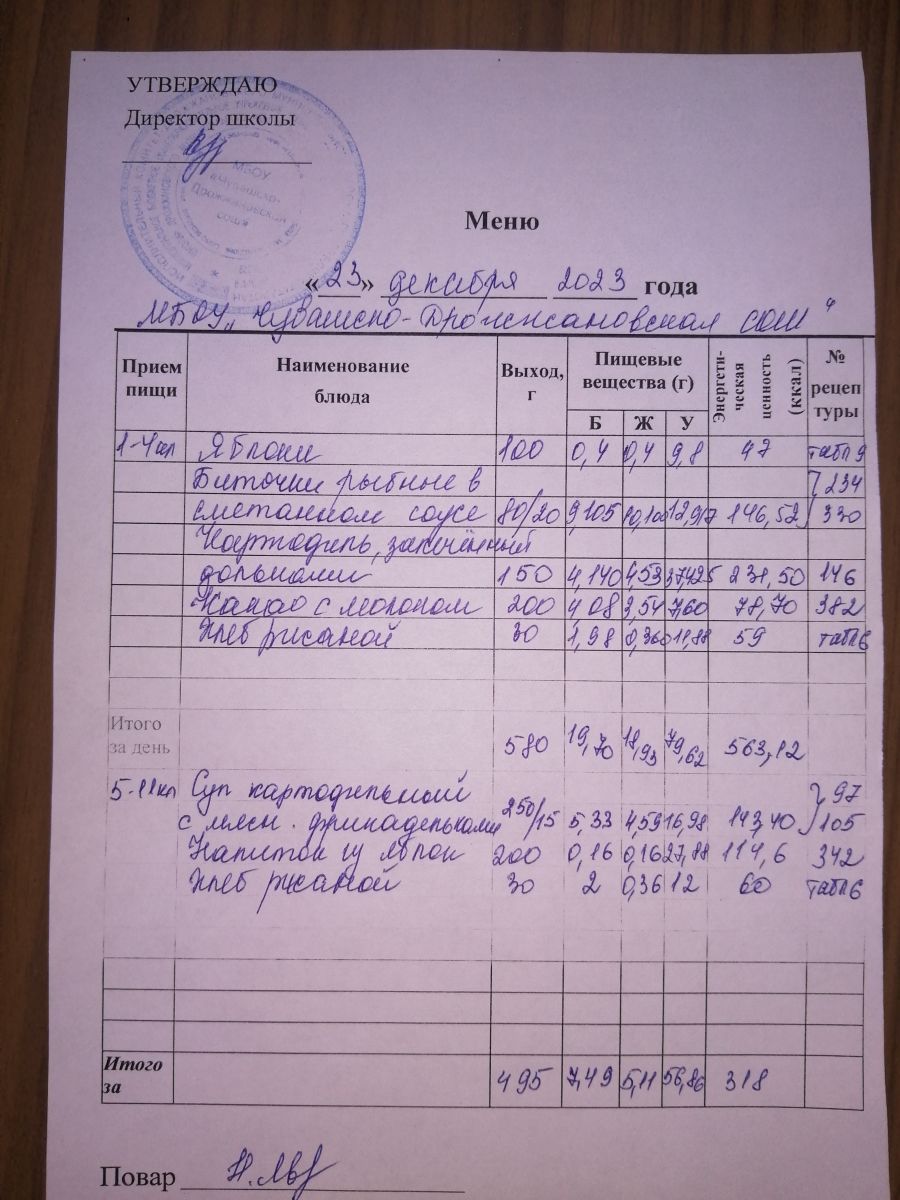 УТВЕРЖДАЮ
Директор школы
МБОУ
Меню
«23» декабря 2023 года
МБОУ „Чувашско-Дрожжановская СОШ"
Прием пищи Наименование блюда Выход, г Пищевые вещества (г) Энергети-ческая ценность (ккал) № рецептуры
Б Ж У
1-4кл Яблоки 100 0,4 0,4 9,8 47 табл 9
Биточки рыбные в 234
сметанном соусе 80/20 9,105 10,100 12,917 146,52 330
Картофель, запечённый
дольками 150 4,140 4,53 37,425 231,50 146
Какао с молоком 200 4,08 3,54 7,60 78,70 382
Хлеб ржаной 30 1,98 0,360 11,88 59 табл6
Итого за день 580 19,70 18,93 79,62 563,12
5-11кл Суп картофельный 97
с мясн. фрикадельками 250/15 5,33 4,59 16,98 143,40 105
Напиток из яблок 200 0,16 0,16 27,88 114,6 342
Хлеб ржаной 30 2 0,36 12 60 табл6
Итого за 495 7,49 5,11 56,86 318
Повар